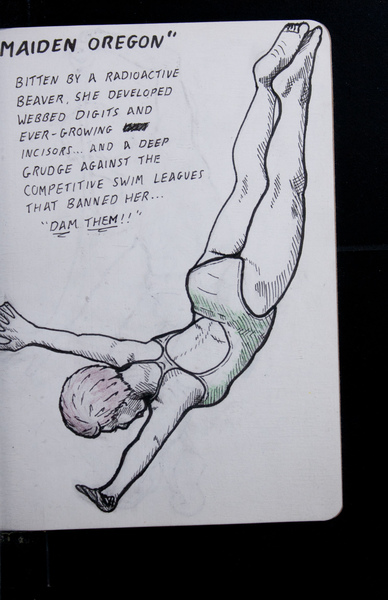 MAIDEN OREGON"
BITTEN BY A RADIOACTIVE
BEAVER, SHE DEVELOPED
WEBBED DIGITS AND
EVER-GROWING
INCISORS... AND A DEEP
GRUDGE AGAINST THE
COMPETITIVE SWIM LEAGUES
THAT BANNED HER...
"DAM THEM!!"